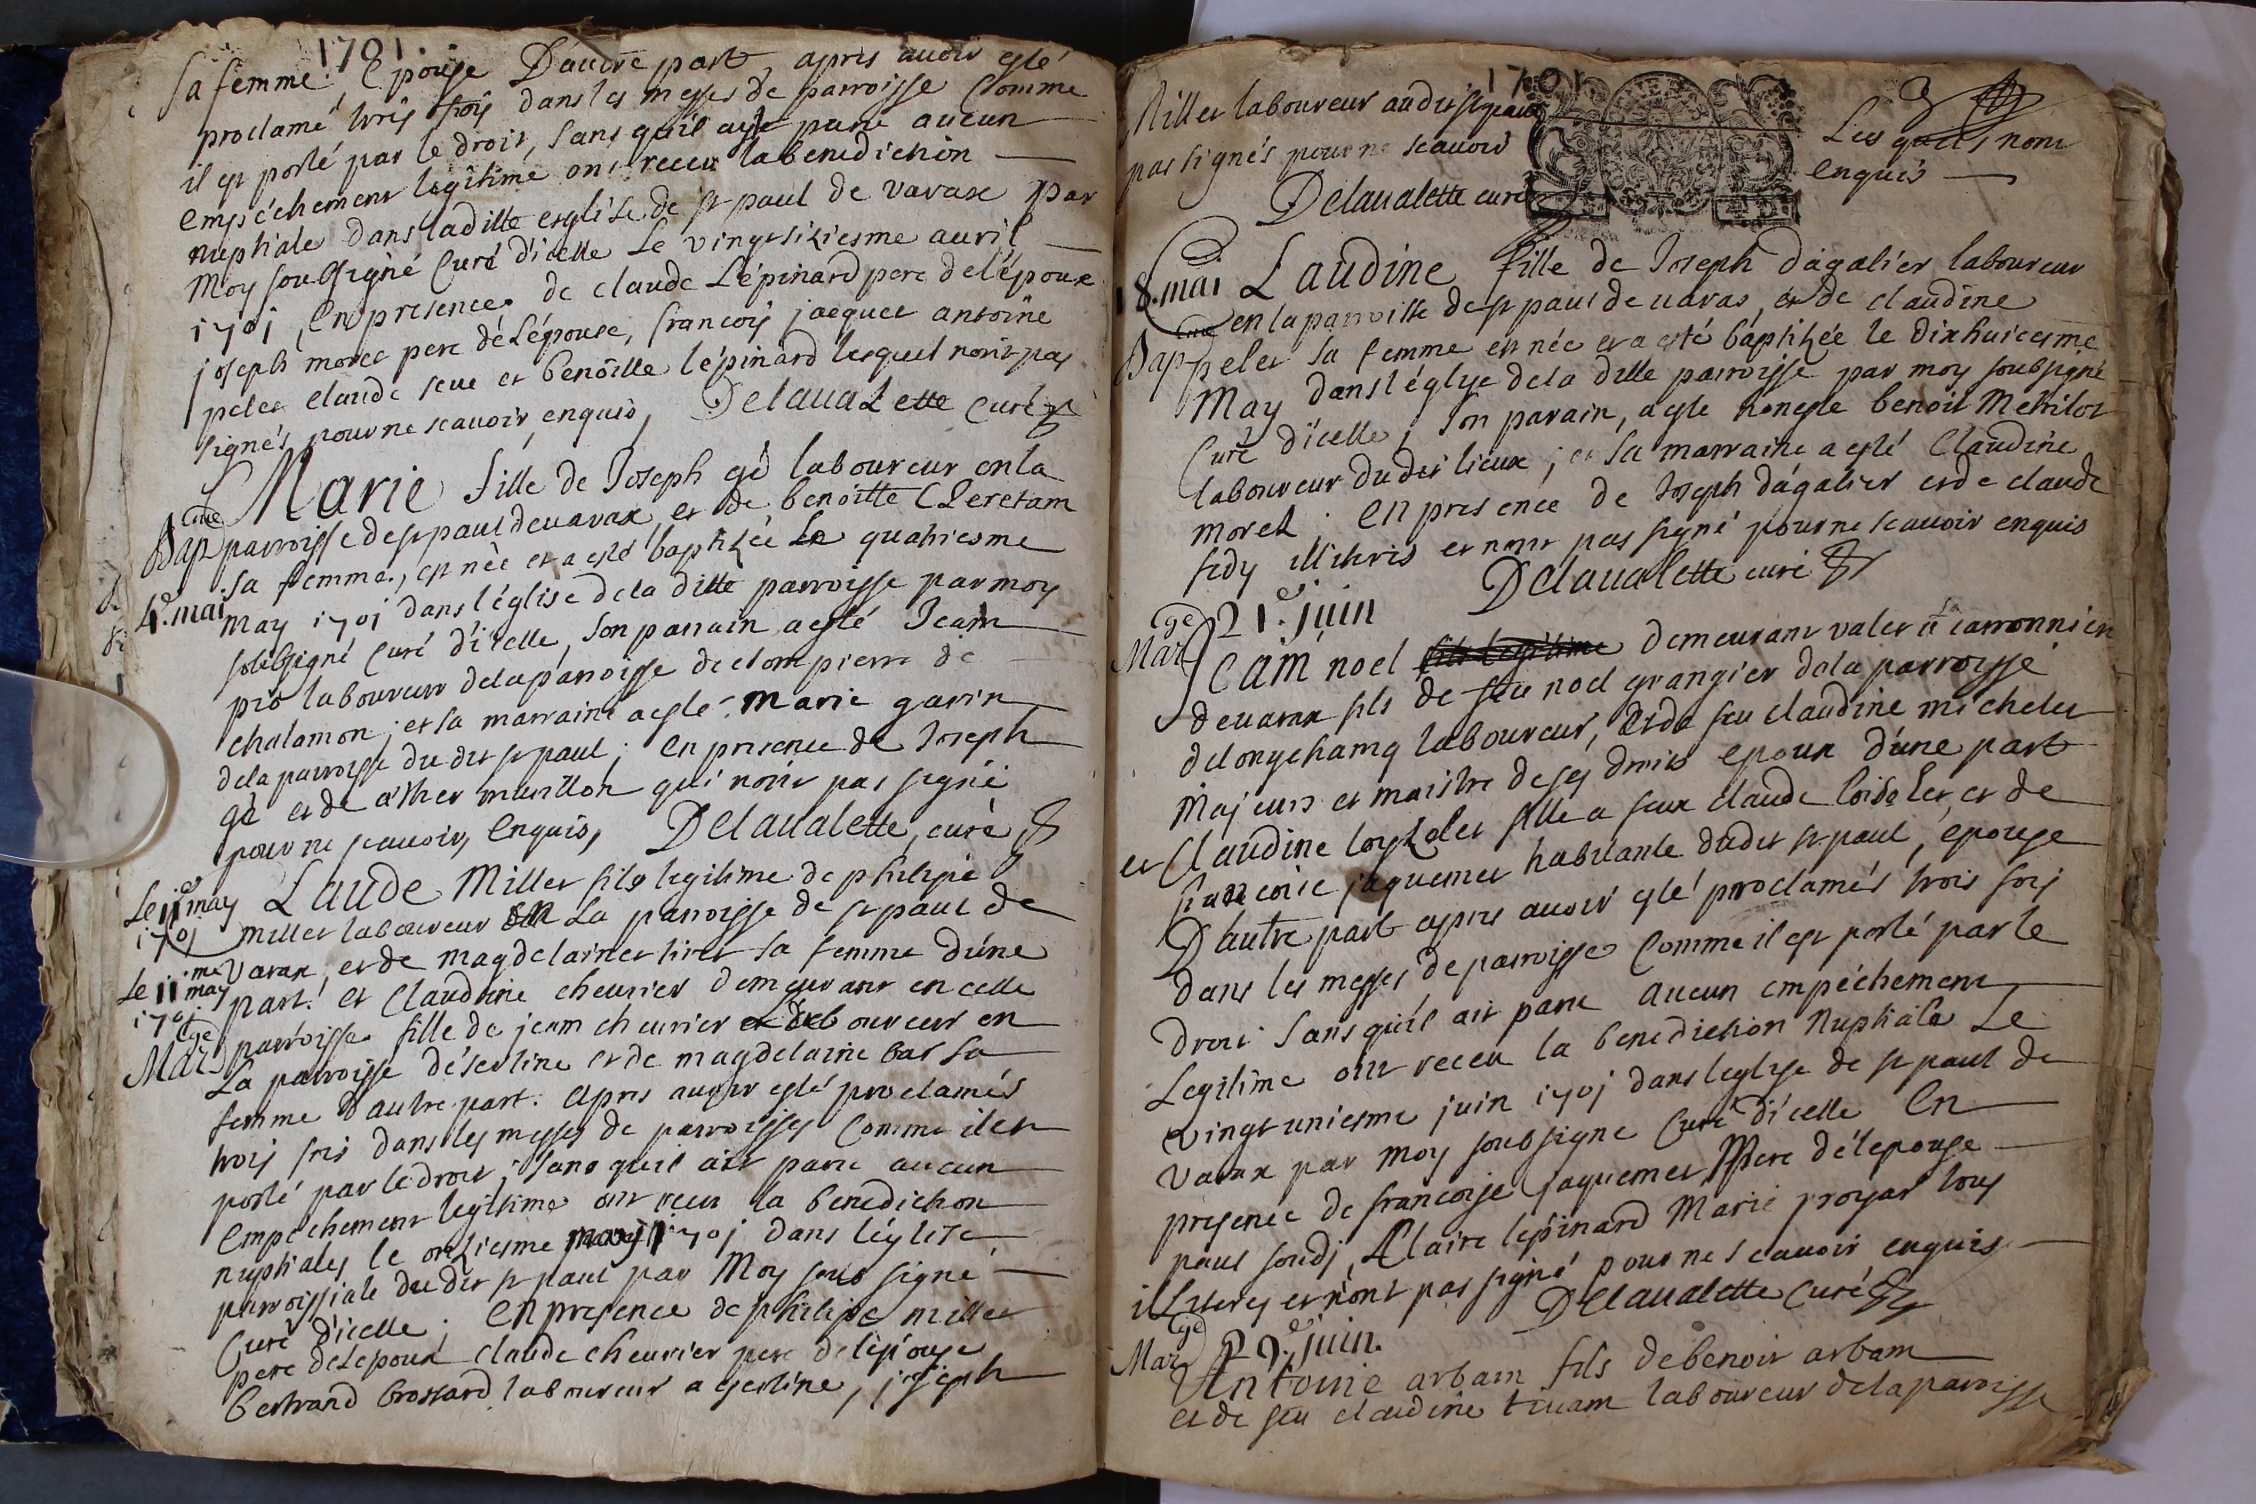 1701
sa femme, Epouse D'autre part apres auoir esté
proclamé trois fois dans les messes de parroisse Comme
il est porté par le droit, sans quil aye paru aucun
empéchement legitime ont receu la benediction
nuptiale dans laditte esglise de st paul de varax par
Moy soubsigné Curé dicelle Le vingtsixiesme auril
1701, En presence de claude Lépinard pere de lépoux
joseph morel pere dé Lépouse, francois jacquet antoine
pelet claude seue et benoitte lépinard lesquel nont pas
signés pour ne scauoir enquis, Delaualette Curé
Marie fille de Joseph gé laboureur en la
Bap parroisse de st paul de varax et de benoitte Cleretam
sa femme, est née et a esté baptizée Le quatriesme
4e. mai
may 1701 dans léglise dela ditte parroisse par moy
soubsigné Curé dicelle, son parrain a esté Jean
pro laboureur dela parroisse de dompierre de
chalamon; et sa marraine a esté Marie garin
dela parroisse du dit st paul; En presence de Joseph
gé et de murillon qui nont pas signé
pour ne scauoir, Enquis, Delaualette, curé
Le 11e may
1701
Laude Miller fils legitime de philipe
miller laboureur en La parroisse de st paul de
Le 11me may
1701
varax, et de magdelaine tiret sa femme d'une
part. et Claudine cheurier demeurant en celle
Marge
parroisse fille de jean cheurier laboureur en
La parroisse dé sertine et de magdelaine bas sa
femme d'autre part. apres auoir esté proclamés
trois fois dans les messes de parroisses Comme il est
porté par le droit; sans quil ait paru aucun
Empechement legitime ont receu la benediction
nuptiales le onziesme may 1701 dans léglise
parroissiale du dit st paul par Moy soubsigné
Curé dicelle; En presence de philipe miller
pere de Lepoux claude cheurier pere de lépouse
bertrand brossard laboureur a sertine, joseph
1701
Miller laboureur audit st paul Les quels nont
pas signés pour ne scauoir enquis
Delaualette curé
18. mai Laudine fille de Joseph dagalier laboureur
en la parroisse de st paul de varas, et de claudine
Bap pelet sa femme est née et a esté baptizée le dixhuictesme
May dans léglise dela ditte parroisse par moy soubsigné
Curé dicelle, Son parain, a esté honeste benoit Metrilot
laboureur dudit lieux; et sa marraine a esté Claudine
morel. En presence de Joseph dagalier et de claude
fidy illitteris et nont pas signé pour ne scauoir enquis
Delaualette curé
21e. juin
Marge
Jeam noel demeurant valet a la carronniere
de varax fils de feu noel grangier dela parroisse
de longchamp laboureur, et de feu claudine michelet
Majeurs et maistre de ses droits epoux d'une part
et Claudine loysolet fille a feux claude loisolet, et de
francoise jaquemet habitante dudit st paul, épouse
D'autre part apres auoir esté proclamés trois fois
dans les messes de parroisse Comme il est porté par le
droit sans quil ait paru aucun empéchement
Legitime ont receu la benediction Nuptiale Le
vingt uniesme juin 1701 dans leglise de st paul de
varax par moy soubsigne Curé dicelle En
presence de francoise jaquemet Mere dé lepouse
paul fondj, Claire lépinard Marie proyar tous
illiteres et nont pas signé pour ne scauoir enquis
Delaualette Curé
Marge 29e. juin.
Antoine arbam fils de benoit arbam
et de feu claudine tiuam laboureur dela paroisse